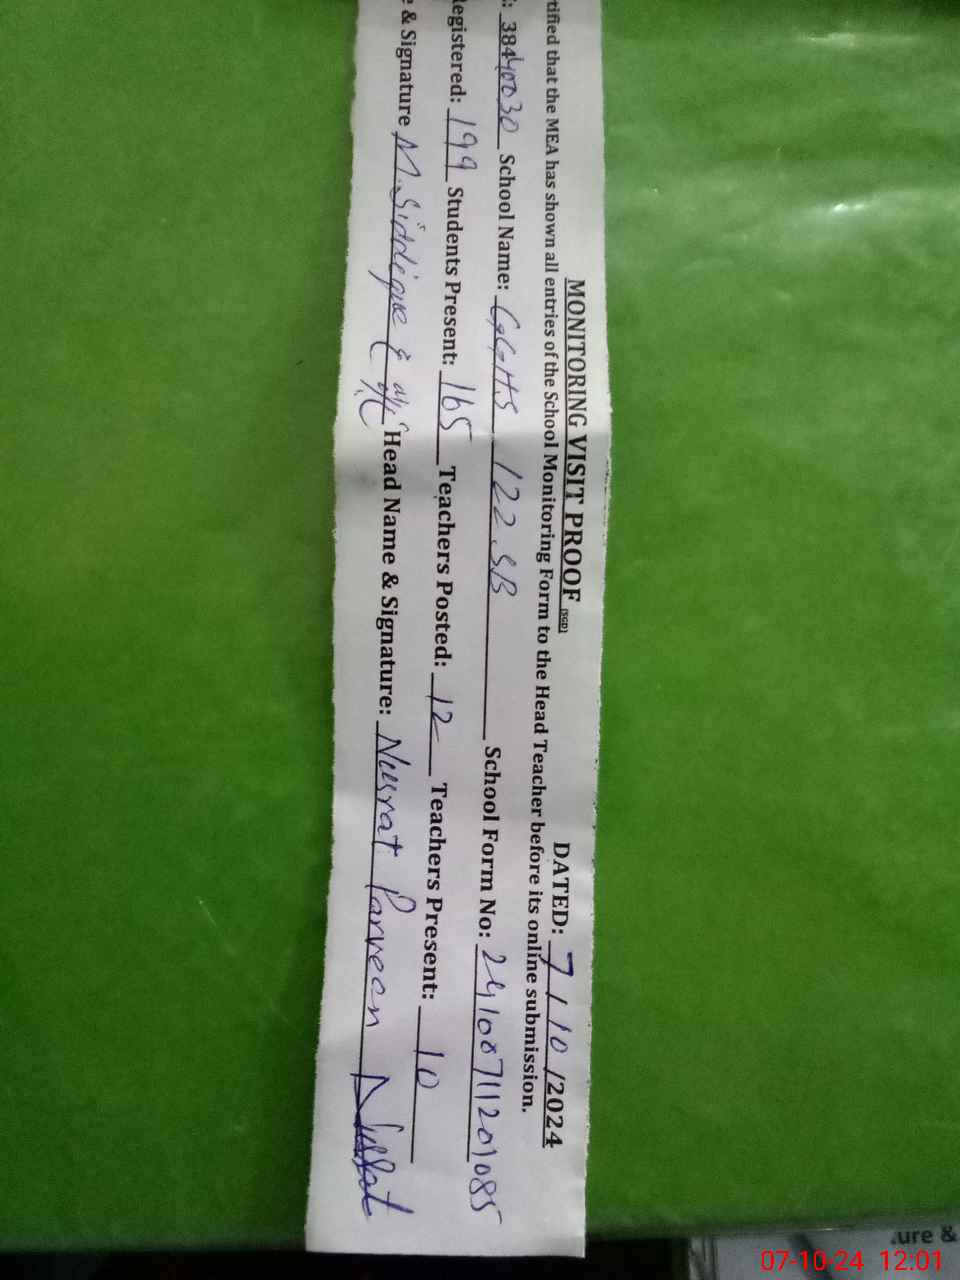 MONITORING VISIT PROOF (SGD) DATED: 7/10/2024
tified that the MEA has shown all entries of the School Monitoring Form to the Head Teacher before its online submission.
: 38440030 School Name: GGHS 122.SB School Form No: 24100711201085
egistered: 199 Students Present: 165 Teachers Posted: 12 Teachers Present: 10
e & Signature M. Siddique Head Name & Signature: Nusrat Parveen Nusrat
.ure &
07-10-24 12:01